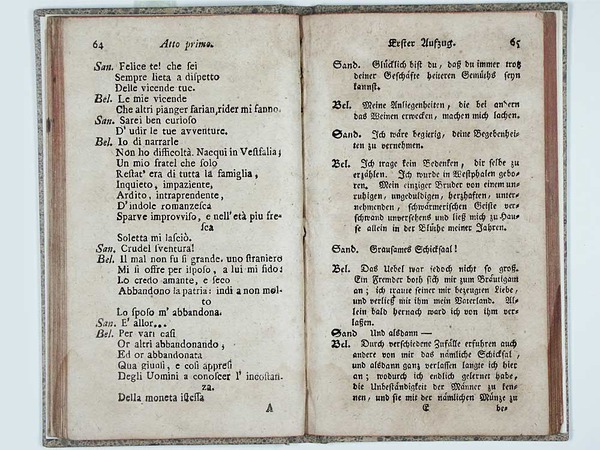 64 Atto primo.
San. Felice te! che sei
Sempre lieta a dispetto
Delle vicende tue.
Bel. Le mie vicende
Che altri pianger farian, rider mi fanno.
San. Sarei ben curioso
D' udir le tue avventure.
Bel. Io di narrarle
Non ho difficoltà. Nacqui in Vestfalia;
Un mio fratel che solo
Restat' era di tutta la famiglia,
Inquieto, impaziente,
Ardito, intraprendente,
D'indole romanzesca
Sparve improvviso, e nell' età piu fre-
sca
Soletta mi lasciò.
San. Crudel sventura!
Bel. Il mal non fu si grande. uno straniero
Mi si offre per isposo, a lui mi fido:
Lo credo amante, e seco
Abbandono la patria: indi a non mol-
to
Lo sposo m' abbandona.
San. E' allor...
Bel. Per vari casi
Or altri abbandonando,
Ed or abbandonata
Qua giunsi, e così appresi
Degli Uomini a conoscer l' incostan-
za.
Della moneta istessa
A
Erster Aufzug. 65
Sand. Glücklich bist du, daß du immer trotz
deiner Geschäfte heiteren Gemüths seyn
kannst.
Bel. Meine Anliegenheiten, die bei andern
das Weinen erwecken, machen mich lachen.
Sand. Ich wäre begierig, deine Begebenhei-
ten zu vernehmen.
Bel. Ich trage kein Bedenken, dir selbe zu
erzählen. Ich wurde in Westphalen gebo-
ren. Mein einziger Bruder von einem un-
ruhigen, ungeduldigen, herzhaften, unter-
nehmenden, schwärmerischen Geiste ver-
schwand unversehens und ließ mich zu Hau-
se allein in der Blüthe meiner Jahren.
Sand. Grausames Schicksaal!
Bel. Das Uebel war jedoch nicht so groß.
Ein Fremder both sich mir zum Bräutigam
an; ich traute seiner mir bezeugten Liebe,
und verließ mit ihm mein Vaterland. Al-
lein bald hernach ward ich von ihm ver-
laßen.
Sand Und alsdann —
Bel. Durch verschiedene Zufälle erfuhren auch
andere von mir das nämliche Schicksal,
und alsdann ganz verlassen langte ich hier
an; wodurch ich endlich gelernet habe,
die Unbeständigkeit der Männer zu ken-
nen, und sie mit der nämlichen Münze zu
E be-